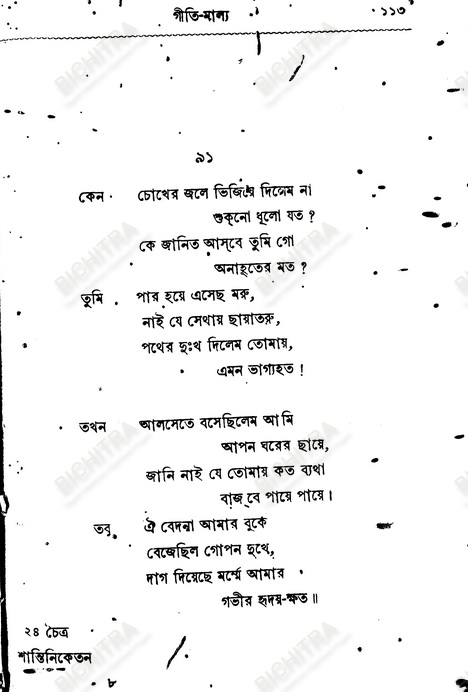 গীতি-মাল্য ১১৩
৯১
কেন চোখের জলে ভিজিয়ে দিলেম না
শুক্‌নো ধূলো যত ?
কে জানিত আস্‌বে তুমি গো
অনাহূতের মত ?
তুমি পার হয়ে এসেছ মরু,
নাই যে সেথায় ছায়াতরু,
পথের দুঃখ দিলেম তোমায়,
এমন ভাগ্যহত !
তখন আলসেতে বসেছিলেম আমি
আপন ঘরের ছায়ে,
জানি নাই যে তোমায় কত ব্যথা
বাজ্‌বে পায়ে পায়ে।
তবু ঐ বেদনা আমার বুকে
বেজেছিল গোপন দুখে,
দাগ দিয়েছে মর্ম্মে আমার
গভীর হৃদয়-ক্ষত॥
২৪ চৈত্র
শান্তিনিকেতন
৮
BICHITRA